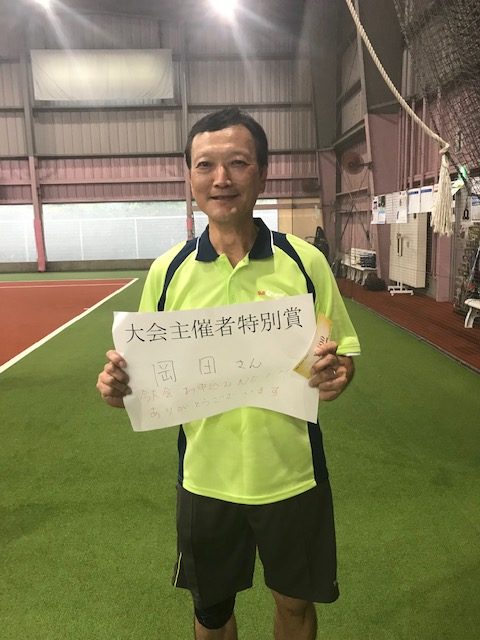 大会主催者特別賞
岡田さん
今大会お申込みいただき
ありがとうございます